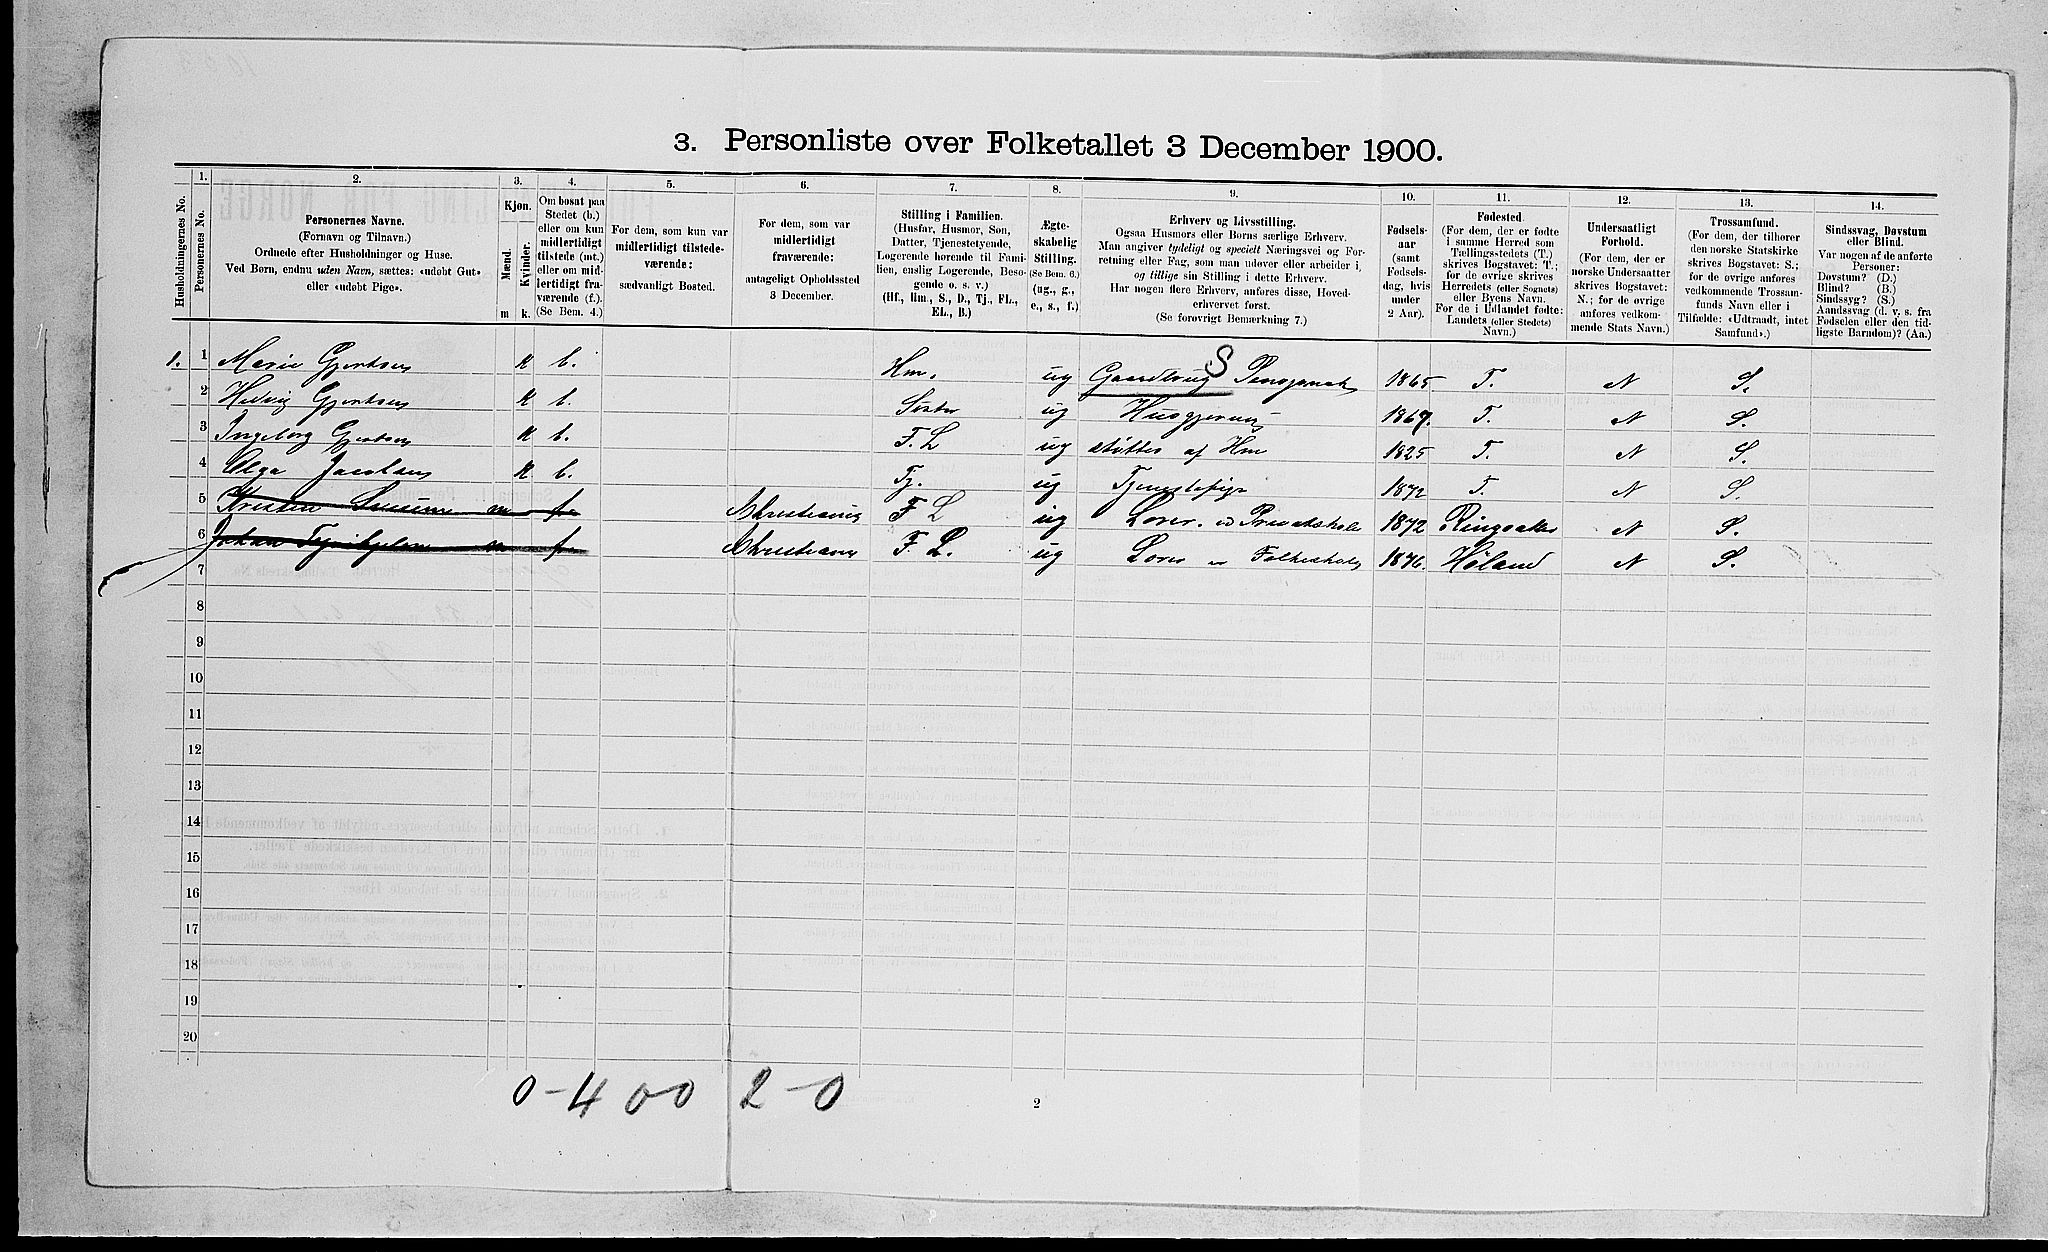 3. Personliste over Folketallet 3 December 1900.
Husholdningernes No.
1. Personernes No.
2. Personernes Navne.
(Fornavn og Tilnavn.)
Ordnede efter Husholdninger og Huse.
Ved Børn, endnu uden Navn, sættes: «udøbt Gut»
eller «udøbt Pige».
3. Kjøn.
Mænd. m
Kvinder. k.
4. Om bosat paa
Stedet (b.)
eller om kun
midlertidigt
tilstede (mt.)
eller om mid-
lertidigt fra-
værende (f.).
(Se Bem. 4.)
5. For dem, som kun var
midlertidigt tilstede-
værende:
sædvanligt Bosted.
6. For dem, som var
midlertidigt
fraværende:
antageligt Opholdssted
3 December.
7. Stilling i Familien.
(Husfar, Husmor, Søn,
Datter, Tjenestetyende,
Logerende hørende til Fami-
lien, enslig Logerende, Besø-
gende o. s. v.)
(Hf., Hm., S., D., Tj., FL.,
EL., B.)
8. Ægte-
skabelig
Stilling.
(Se Bem. 6.)
(ug., g.,
e., s., f.)
9. Erhverv og Livsstilling.
Ogsaa Husmors eller Børns særlige Erhverv.
Man angiver tydeligt og specielt Næringsvei og For-
retning eller Fag, som man udøver eller arbeider i,
og tillige sin Stilling i dette Erhverv.
Har nogen flere Erhverv, anføres disse, Hoved-
erhvervet først.
(Se forøvrigt Bemærkning 7.)
10. Fødsels-
aar
(samt
Fødsels-
dag, hvis
under
2 Aar).
11. Fødested.
(For dem, der er fødte
i samme Herred som
Tællingsstedets (T.)
skrives Bogstavet: T.;
for de øvrige skrives
Herredets (eller Sognets)
eller Byens Navn.
For de i Udlandet fødte:
Landets (eller Stedets)
Navn.)
12. Undersaatligt
Forhold.
(For dem, der er
norske Undersaatter
skrives Bogstavet:
N.; for de øvrige
anføres vedkom-
mende Stats Navn.)
13. Trossamfund.
(For dem, der tilhører
den norske Statskirke
skrives Bogstavet: S.;
for de øvrige anføres
vedkommende Trossam-
funds Navn eller i
Tilfælde: «Udtraadt, intet
Samfund».)
14. Sindssvag, Døvstum
eller Blind.
Var nogen af de anførte
Personer:
Døvstum? (D.)
Blind? (B.)
Sindssyg? (S.)
Aandssvag (d. v. s. fra
Fødselen eller den tid-
ligste Barndom)? (Aa.)
S
1. 1 Marie Gjertsen k b. Hm. ug Gaardbrug Pensjonat 1865 T. N S.
2 Hedvig Gjertsen k b. Søster ug Husgjerning 1867. T. N S.
3 Ingeborg Gjertsen k b. F. L ug støttes af Hm 1825 T. N S.
4 Olga Jacobsen k b. Tj. ug Tjenestepige 1872 T. N S.
5 Kristen m f Christiania F L ug Lærer v Privatskole 1872 Ringsaker N S.
6 Johan m f Christiania F. L. ug Lærer v Folkeskole 1876. Høland N S.
7
8
9
10
11
12
13
14
15
16
17
18
19
20
0-4 00 2-0
2